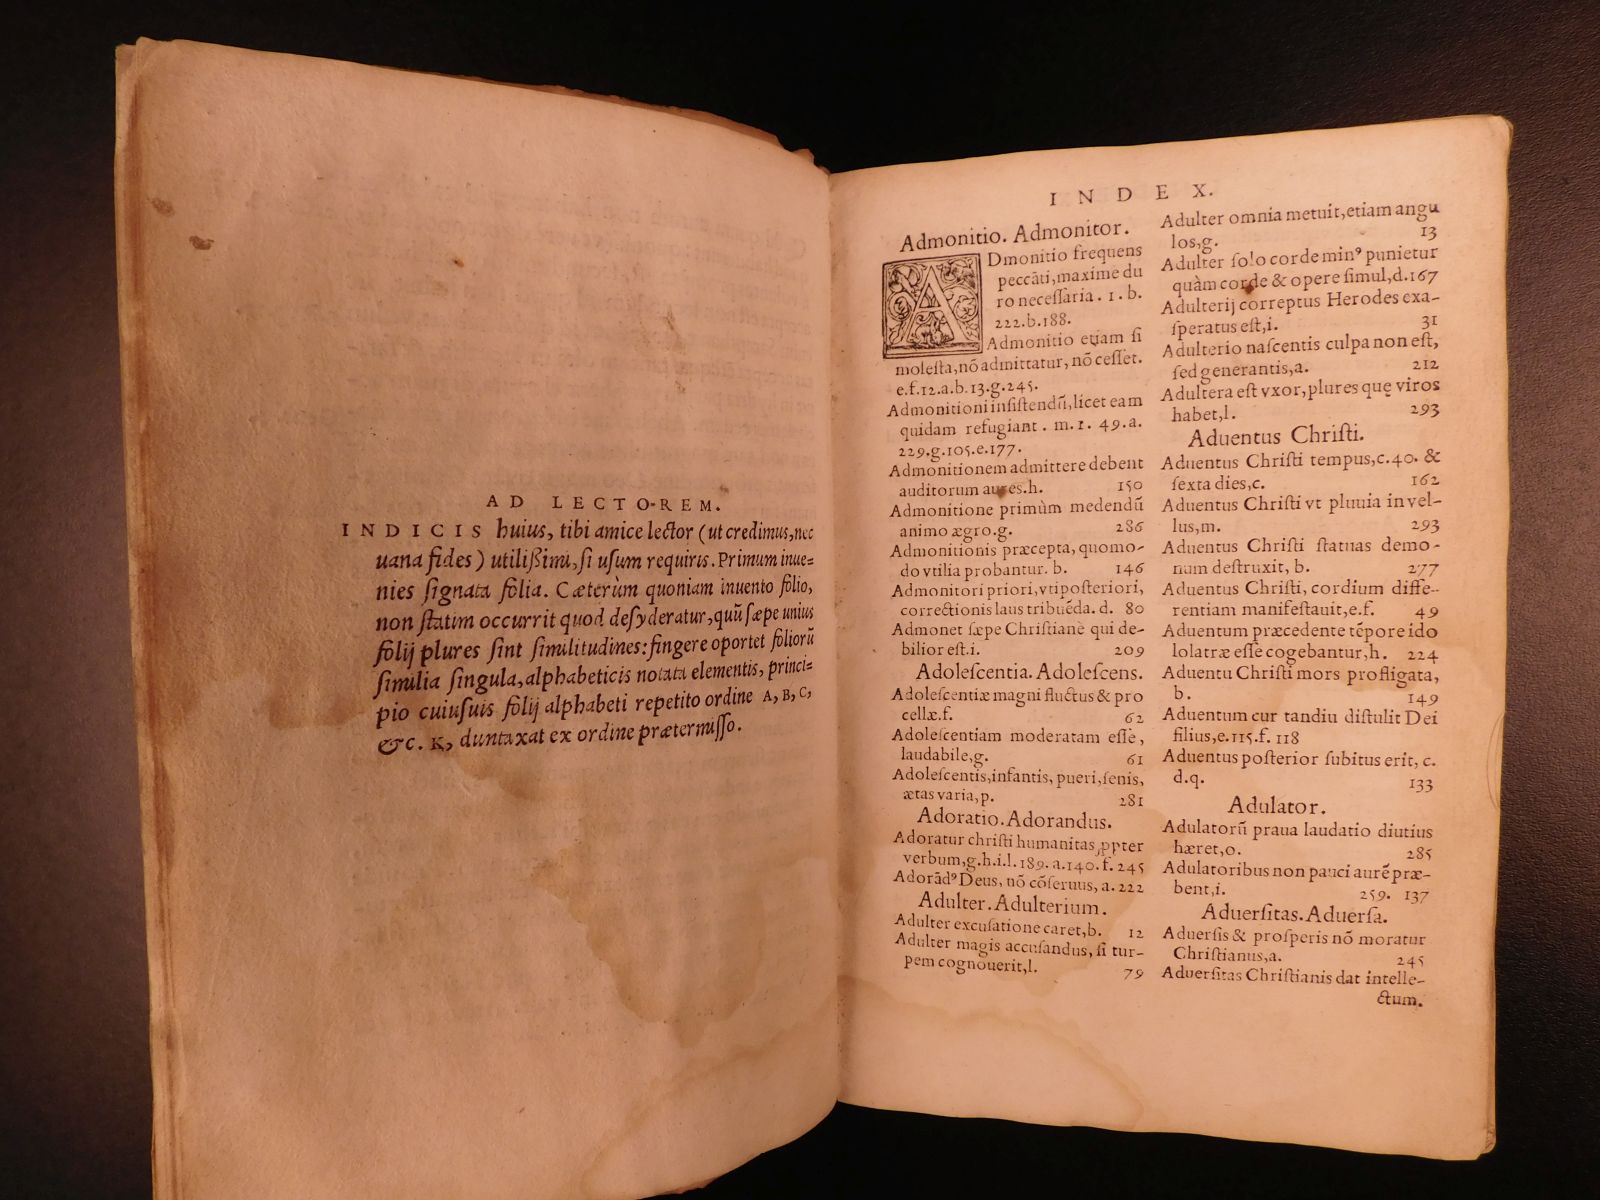 AD LECTOREM.
INDICIS huius, tibi amice lector (ut credimus, nec
uana fides) utilißimū, si usum requiris. Primum inue=
nies signata folia. Cæterùm quoniam inuento folio,
non statim occurrit quod desyderatur, quū sæpe unius
folij plures sint similitudines: fingere oportet foliorū
similia singula, alphabeticis notata elementis, princi=
pio cuiusuis folij alphabeti repetito ordine A, B, C,
&c. K, duntaxat ex ordine prætermisso.
INDEX.
Admonitio. Admonitor.
ADmonitio frequens
peccāti, maxime du
ro necessaria. 1. b.
222. b. 188.
Admonitio etiam si
molesta, nō admittatur, nō cesset.
e.f.12.a.b.13.g.245.
Admonitioni insistendū, licet eam
quidam refugiant. m.1. 49.a.
229.g.105.e.177.
Admonitionem admittere debent
auditorum aures.h. 150
Admonitione primùm medendū
animo ægro.g. 286
Admonitionis præcepta, quomo-
do vtilia probantur. b. 146
Admonitori priori, vt posteriori,
correctionis laus tribuēda. d. 80
Admonet sæpe Christianè qui de-
bilior est.i. 209
Adolescentia. Adolescens.
Adolescentiæ magni fluctus & pro
cellæ.f. 62
Adolescentiam moderatam esse,
laudabile, g. 61
Adolescentis, infantis, pueri, senis,
ætas varia, p. 281
Adoratio. Adorandus.
Adoratur christi humanitas, ꝓpter
verbum, g.h.i.l. 189. a.140. f. 245
Adorād⁹ Deus, nō cōseruus, a. 222
Adulter. Adulterium.
Adulter excusatione caret, b. 12
Adulter magis accusandus, si tur-
pem cognouerit, l. 79
Adulter omnia metuit, etiam angu
los, g. 13
Adulter solo corde min⁹ punietur
quàm corde & opere simul, d. 167
Adulterij correptus Herodes exa-
speratus est, i. 31
Adulterio nascentis culpa non est,
sed generantis, a. 212
Adultera est vxor, plures quę viros
habet, l. 293
Aduentus Christi.
Aduentus Christi tempus, c. 40. &
sexta dies, c. 162
Aduentus Christi vt pluuia in vel-
lus, m. 293
Aduentus Christi statuas demo-
num destruxit, b. 277
Aduentus Christi, cordium diffe-
rentiam manifestauit, e.f. 49
Aduentum præcedente tēpore ido
lolatræ esse cogebantur, h. 224
Aduentu Christi mors profligata,
b. 149
Aduentum cur tandiu distulit Dei
filius, e. 115. f. 118
Aduentus posterior subitus erit, c.
d.q. 133
Adulator.
Adulatorū praua laudatio diutius
hæret, o. 285
Adulatoribus non pauci aurē præ-
bent, i. 259. 137
Aduersitas. Aduersa.
Aduersis & prosperis nō moratur
Christianus, a. 245
Aduersitas Christianis dat intelle-
ctum.